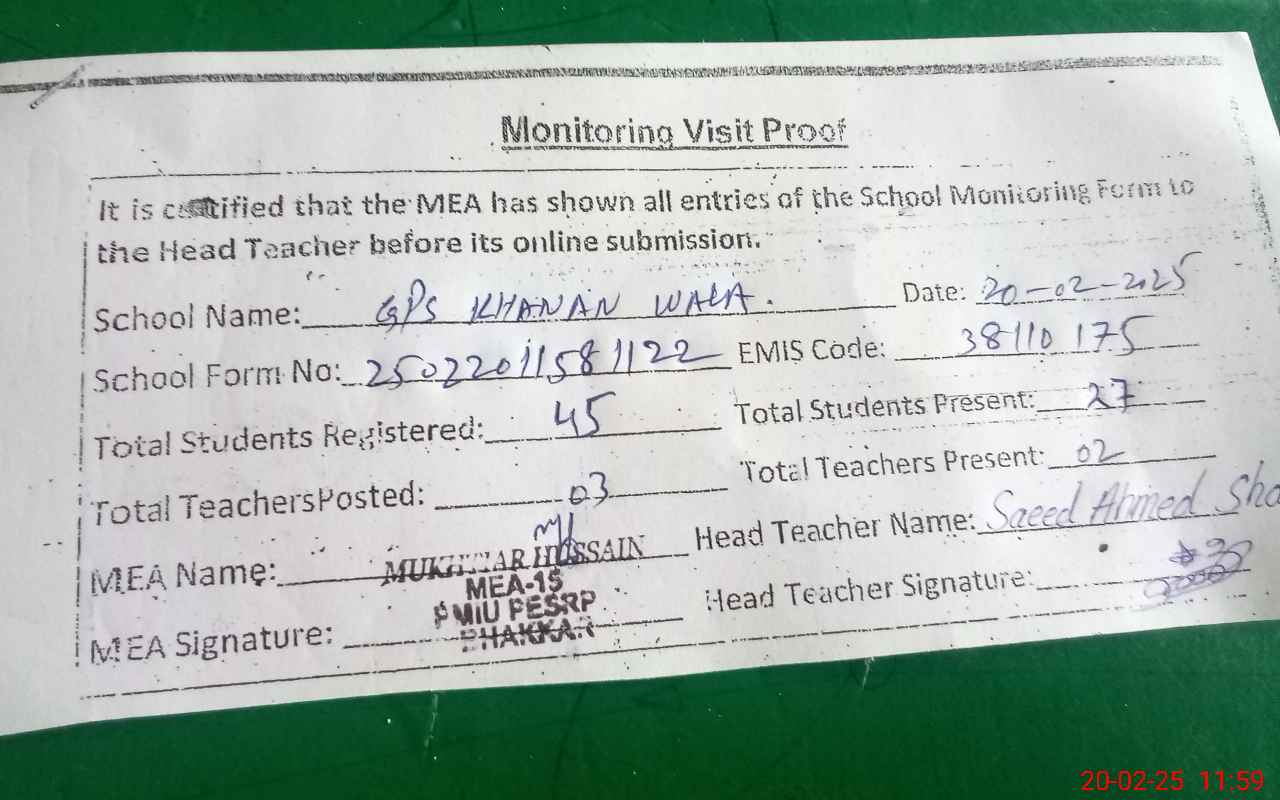 Monitoring Visit Proof
It is certified that the MEA has shown all entries of the School Monitoring Form to
the Head Teacher before its online submission.
School Name: GPS KHANAN WALA. Date: 20-02-2025
School Form No: 25022011581122 EMIS Code: 38110175
Total Students Registered: 45 Total Students Present: 27
Total TeachersPosted: 03 Total Teachers Present: 02
MEA Name: MUKHTAR HUSSAIN Head Teacher Name: Saeed Ahmed Sha
MEA-15
PMIU PESRP
BHAKKAR
MEA Signature: Head Teacher Signature:
20-02-25 11:59